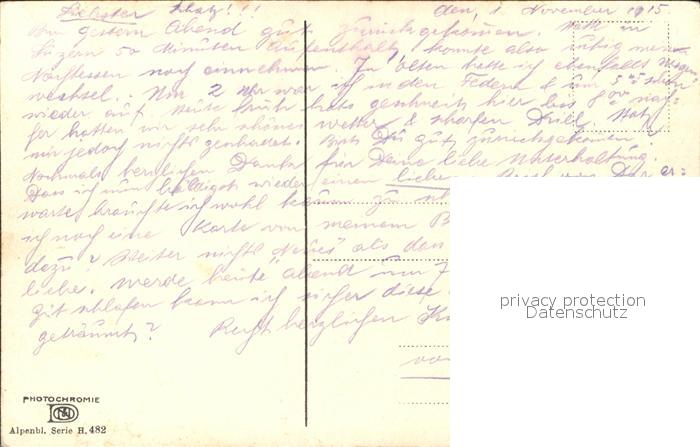 Liebster Schatz!!! den, 1. November 1915.
Bin gestern Abend gut zurückgekommen. Hatte in
Luzern 50 Minuten Aufenthalt, konnte also ruhig mein
Nachtessen noch einnehmen. In Olten hatte ich ebenfalls Wagen-
wechsel. Um 2 Uhr war ich in den Federn & um 5 schon
wieder auf. Heute früh hats geschneit hier bis 8 00 nach-
her hatten wir sehr schönes Wetter & scharfen Drill. Hat
mir jedoch nichts geschadet. Bist Du gut zurückgekommen?
Nochmals herzlichen Dank für Deine liebe Unterhaltung.
Dass ich nun baldigst wieder einen lieben von Dir er-
warte, brauchte ich wohl kaum zu
ich noch eine Karte von meinem
dazu? Weiter nichts "Neues" als dass
liebe. Werde heute Abend um 7
gut schlafen kann ich sicher diese
geträumt? Recht herzlichen
PHOTOCHROMIE
Alpenbl. Serie H. 482
privacy protection
Datenschutz